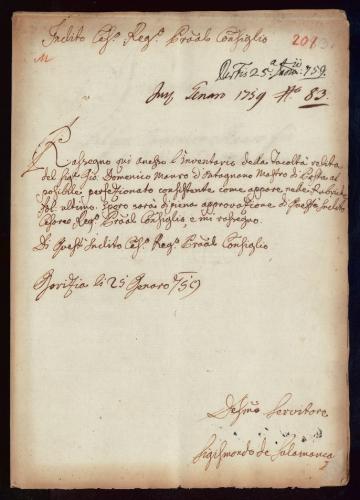 Inclito Ces.º Reg.º Prãal Consiglio
Genaro 1759 N.º 83.
Rassegno qui anesso l'Inventario della Facoltà relita
del Sig.r Gio. Domenico Mauro d'Antognano Mastro di Posta al
possibile perfezionato consistente, come appare nelle Rubriche
sol ultimo. Spero sarà di piena approvazione di questo Inclito
Cesareo Reg.º Prãal Consiglio, e mi rassegno.
Di questo Inclito Ces.º Reg.º Prãal Consiglio
Gorizia li 25 Genaro 759
Servitore
Sigismondo de Salamanca